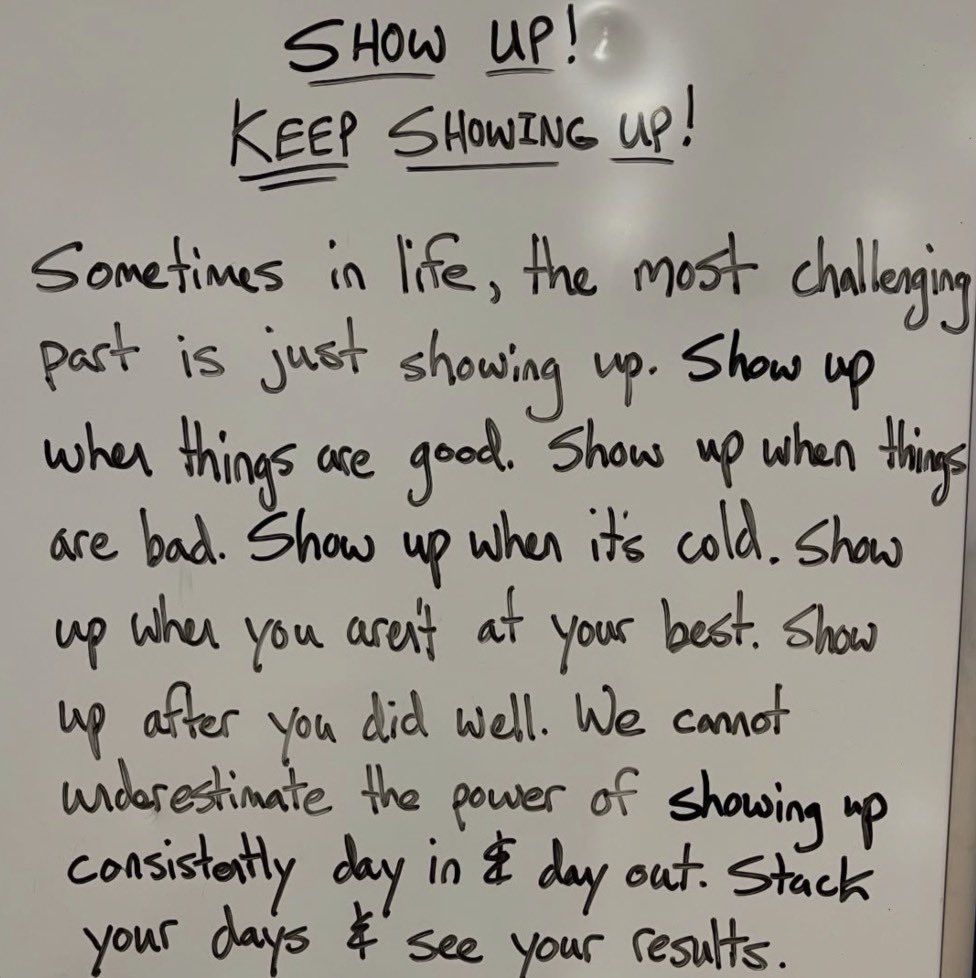 SHOW UP!
KEEP SHOWING UP!
Sometimes in life, the most challenging
part is just showing up. Show up
when things are good. Show up when things
are bad. Show up when it's cold. Show
up when you aren't at your best. Show
up after you did well. We cannot
underestimate the power of showing up
consistently day in & day out. Stack
your days & see your results.